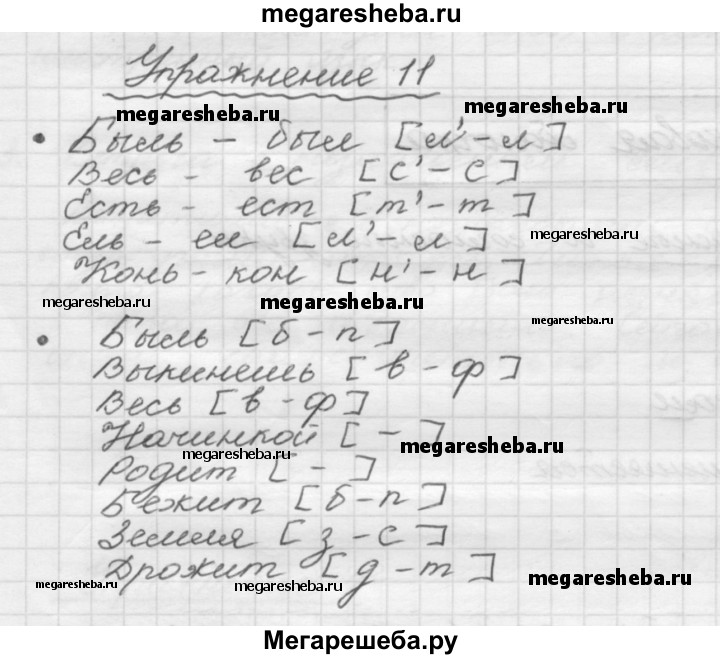 megaresheba.ru
Упражнение 11
megaresheba.ru
megaresheba.ru
• Быль - был [л'-л]
Весь - вес [с'-с]
Есть - ест [т'-т]
megaresheba.ru
Ель - ел [л'-л]
Конь - кон [н'-н]
megaresheba.ru
megaresheba.ru
megaresheba.ru
• Быль [б-п]
Выкинешь [в-ф]
Весь [в-ф]
Начинкой [-]
megaresheba.ru
megaresheba.ru
Родит [-]
Бежит [б-п]
Земля [з-с]
megaresheba.ru
Дрожит [д-т]
megaresheba.ru
megaresheba.ru
megaresheba.ru
Мегарешеба.ру